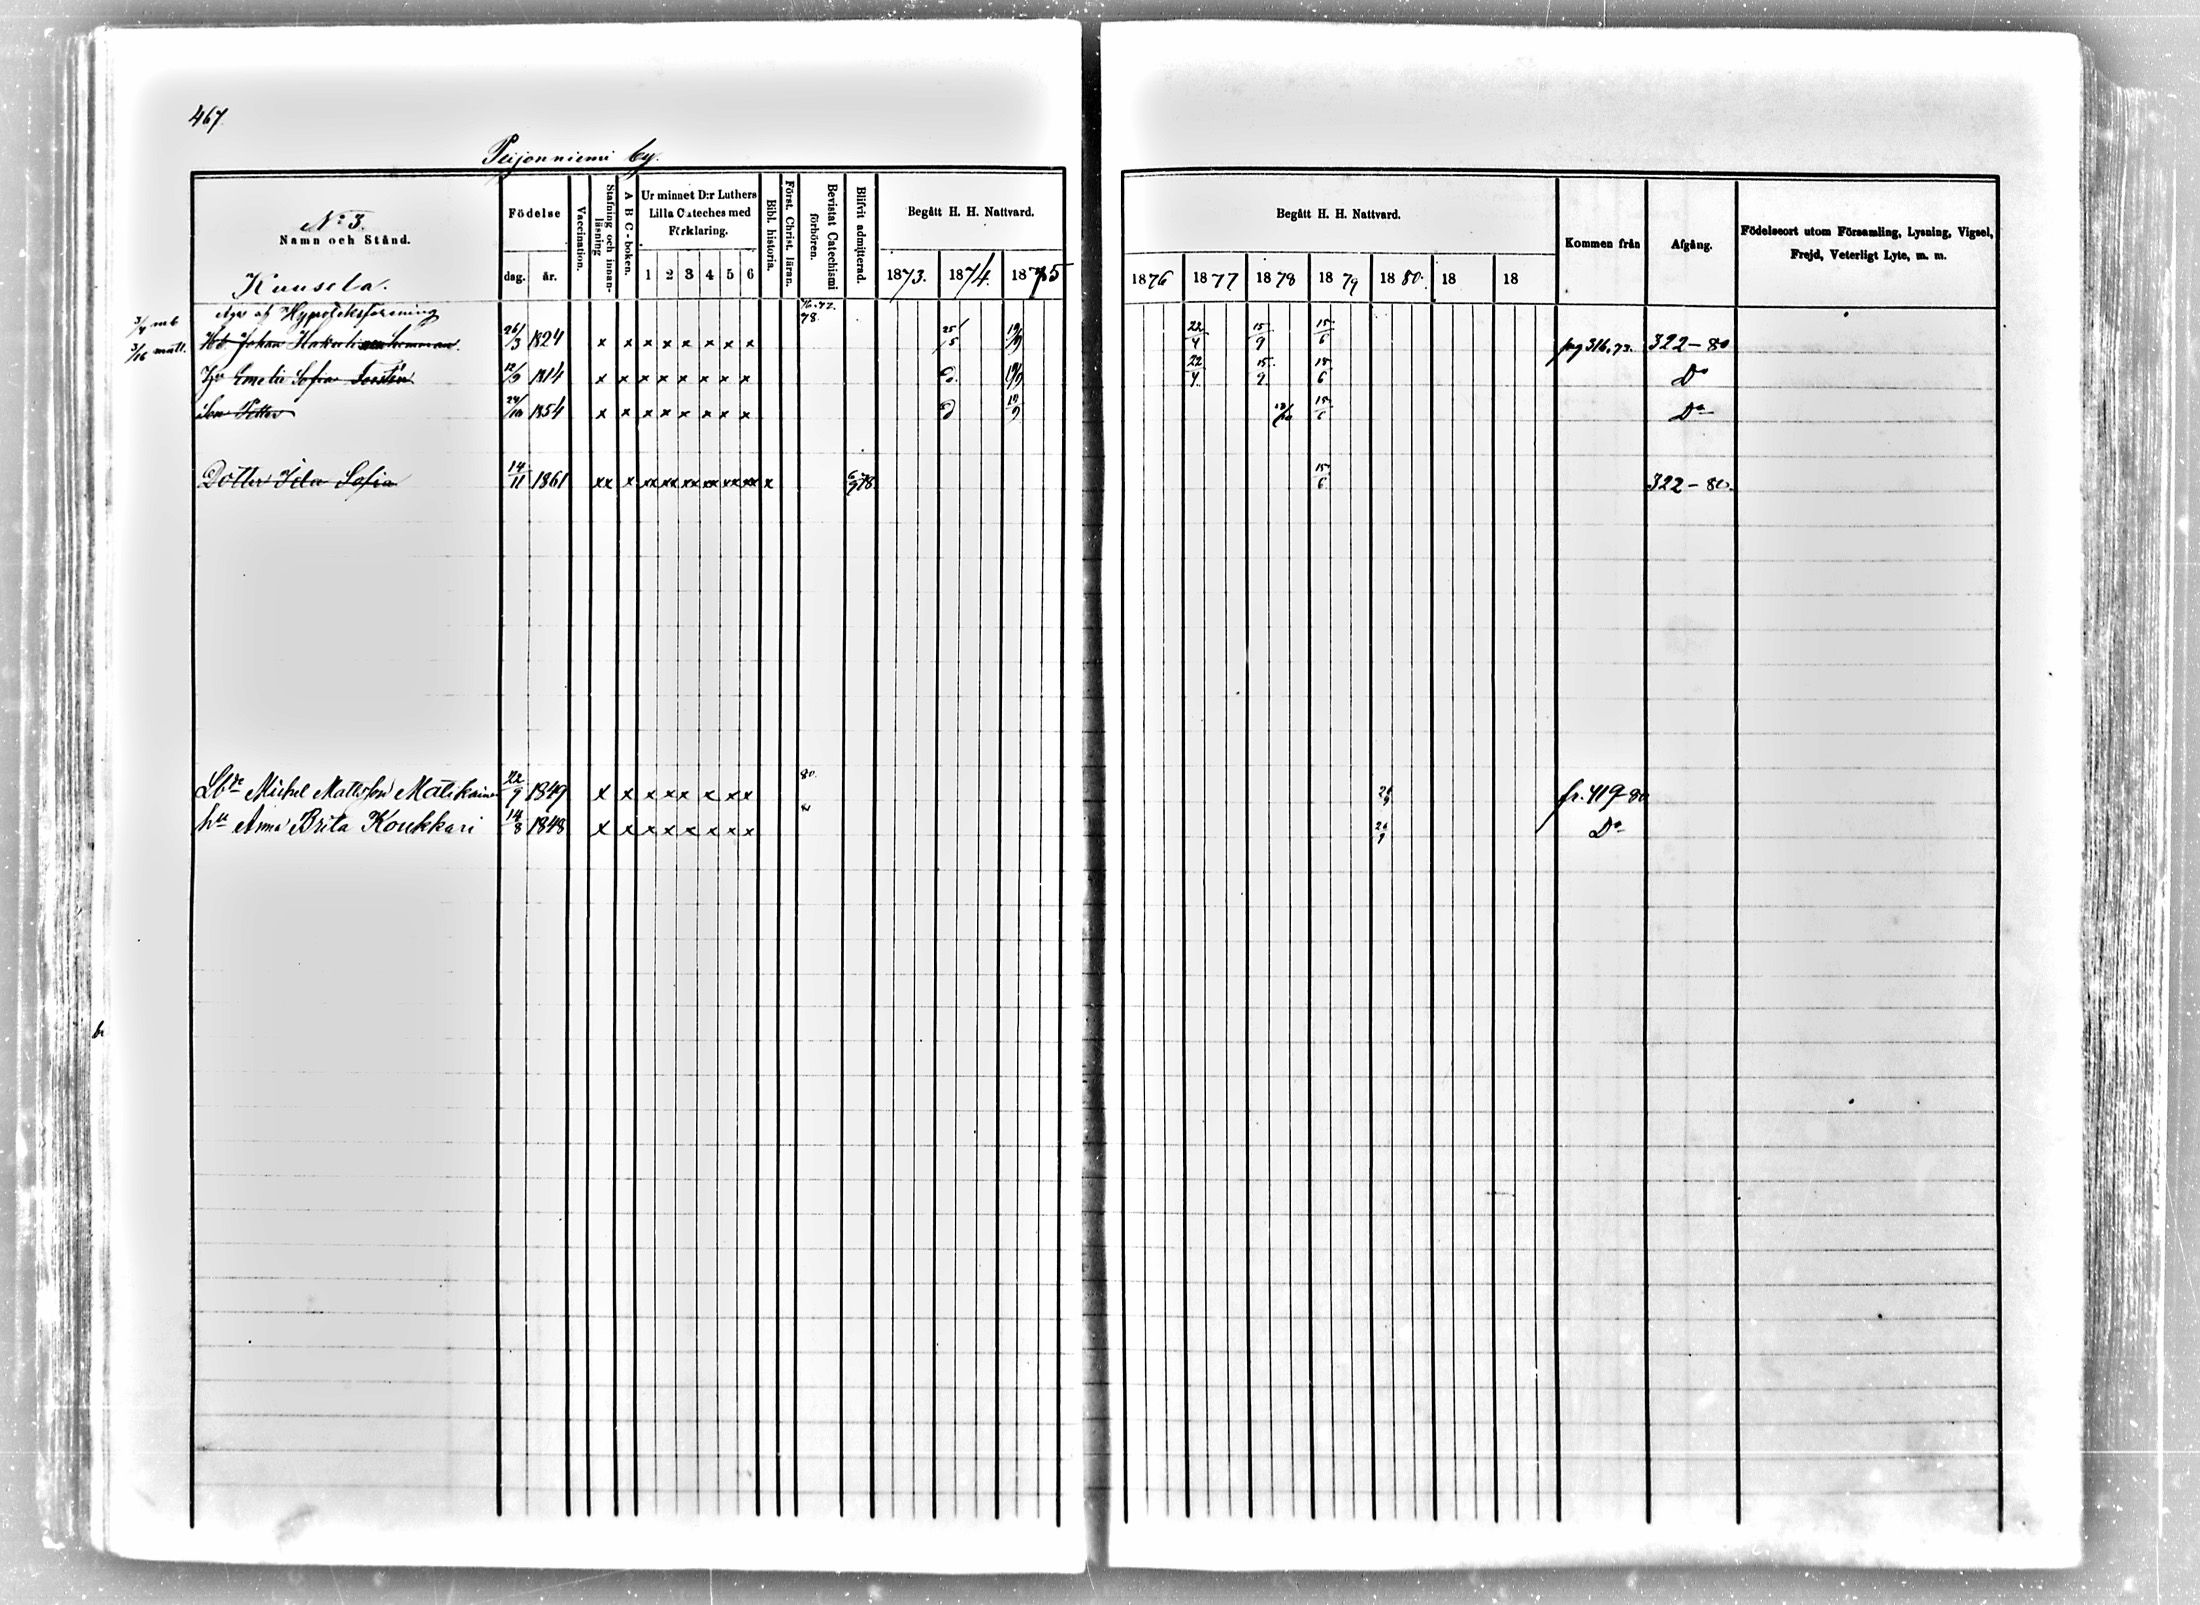 467
Peijonniemi by.
No 3.
Namn och Stånd.
Födelse
dag. år.
Vaccination.
Stafning och innanläsning
A B C-boken.
Ur minnet D:r Luthers Lilla Cateches med Förklaring.
1 2 3 4 5 6
Bibl. historia.
Först. Christ. läran.
Bevistat Catechismi förhören.
Blifvit admitterad.
Begått H. H. Nattvard.
1873. 1874. 1875
Begått H. H. Nattvard.
1876 1877 1878 1879 1880. 18 18
Kommen från
Afgång.
Födelseort utom Församling, Lysning, Vigsel, Frejd, Veterligt Lyte, m. m.
Kuusela.
af Hypoteksförening 76. 77. 78.
Johan 26/3 1824 x x x x x x x x 25/5 19/9 22/4 15/9 15/6 pag 316. 73. 322-80
Emelie Sofia 12/9 1814 x x x x x x x x Do. 19/9 22/4 15/9 15/6 Do
Son Petter 24/10 1854 x x x x x x x x 19/9 15/6 Do
Dotter Ida Sofia 14/11 1861 xx x xx xx xx xx xx xx x 78. 15/6 322-80.
Michel Mattsson Matikainen 22/9 1849 x x x x x x x x 80. fr. 419-80
hu Anna Brita Koukkari 14/8 1848 x x x x x x x x Do